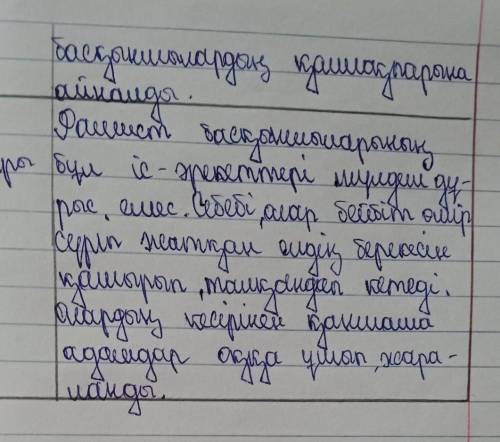 басқыншылардың қолшоқпарына
айналды.
Фашист басқыншыларының
ры бұл іс-әрекеттері мүлдем дұ-
рыс емес. Себебі, олар бейбіт өмір
сүріп жатқан елдің берекесін
қашырып, талқандап кетеді.
Олардың кесірінен қаншама
адамдар оққа ұшып, жара-
ланды.